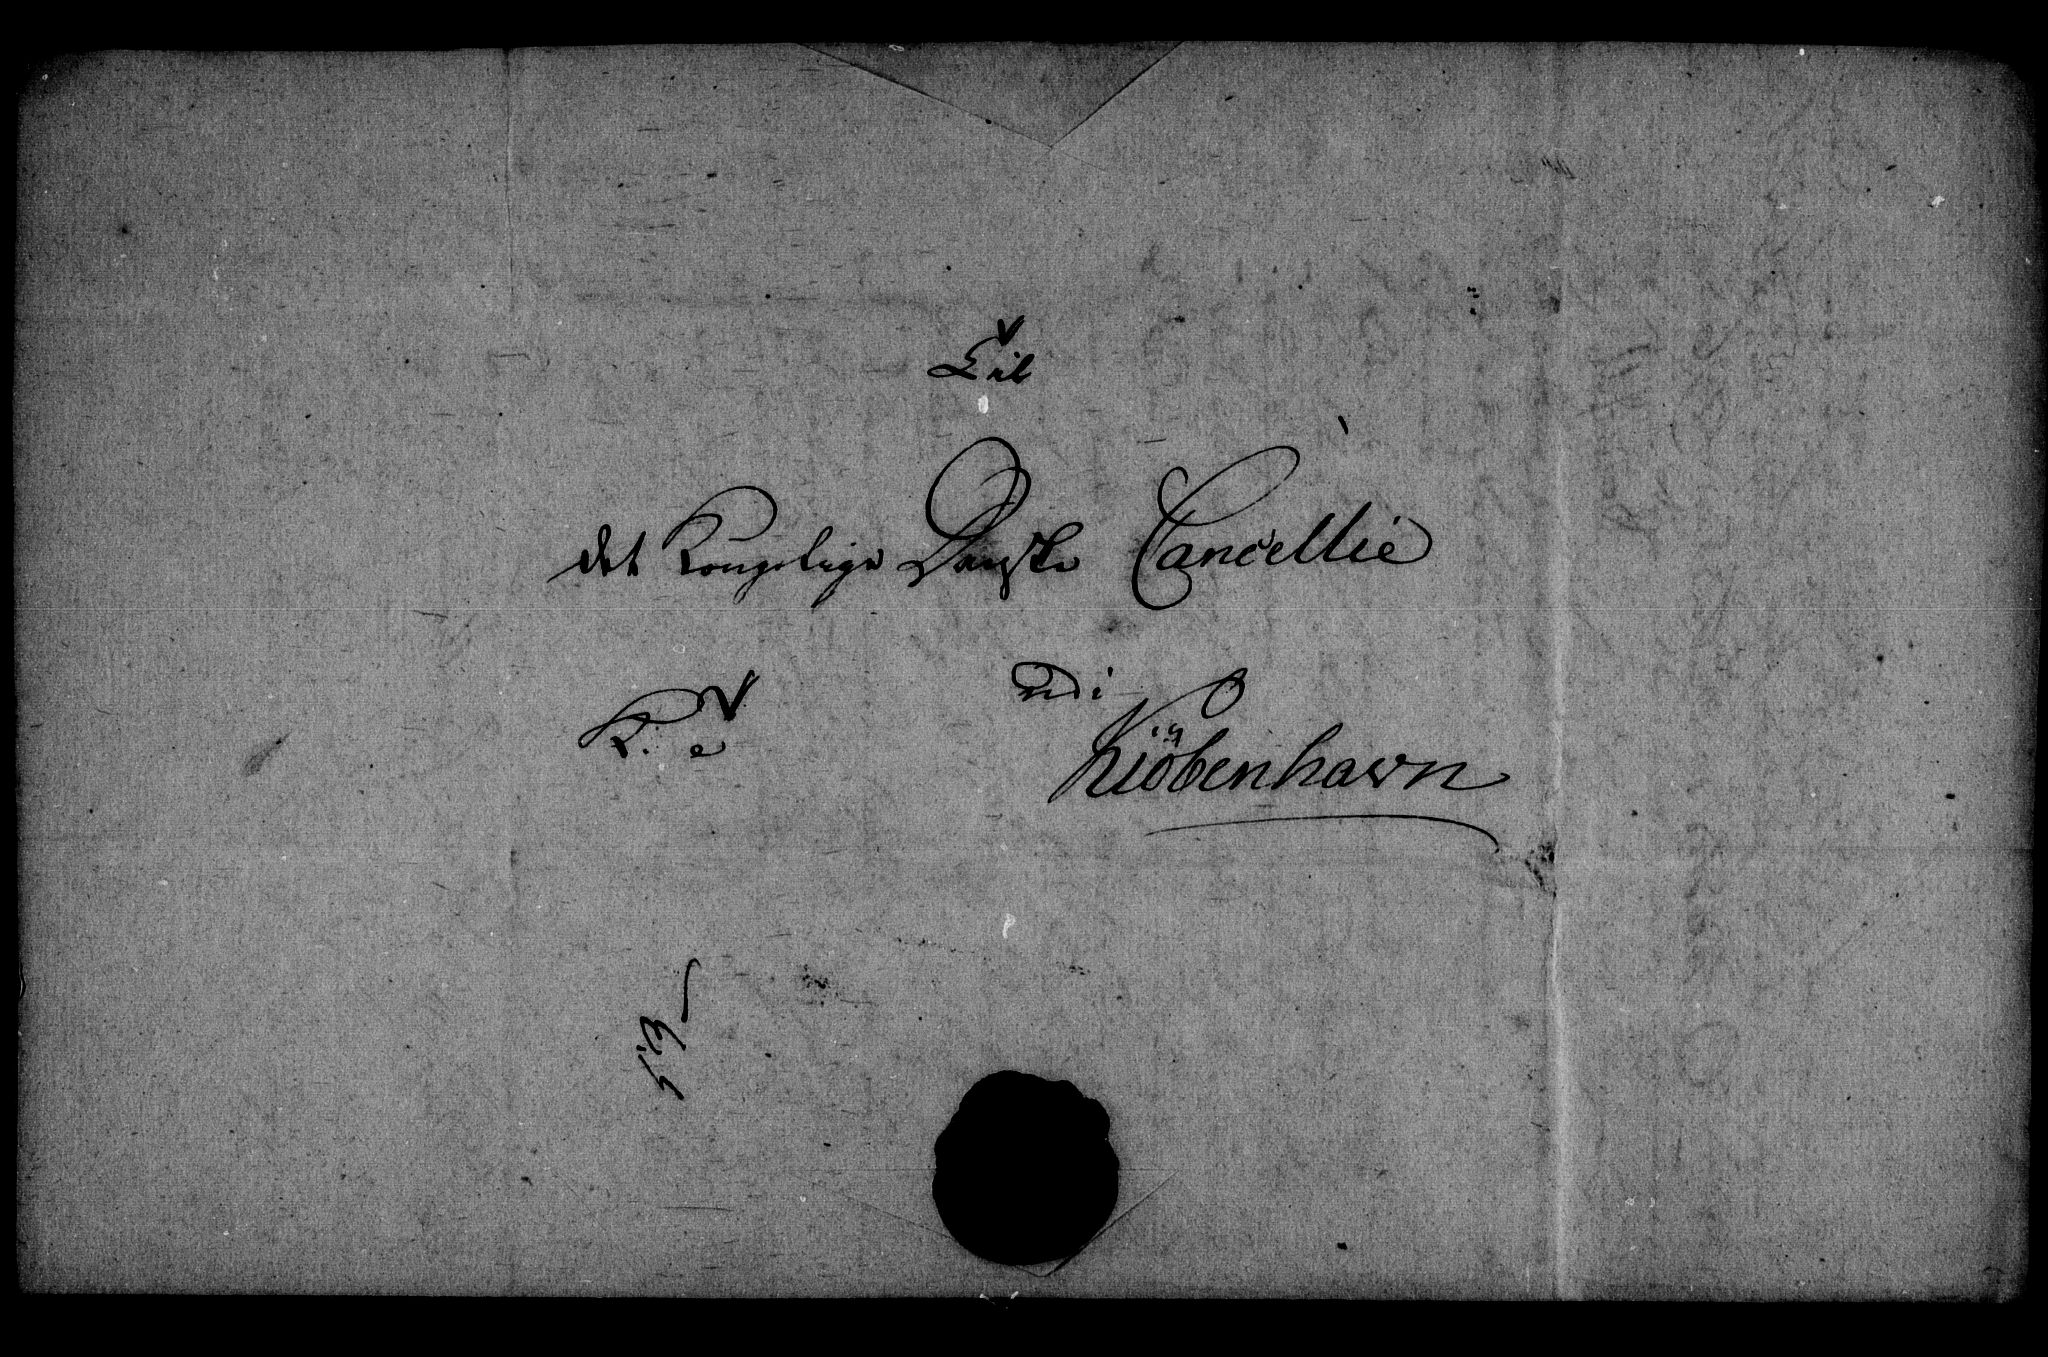 Til
det Kongelige Danske Cancellie
K: S.
udi
Kiöbenhavn